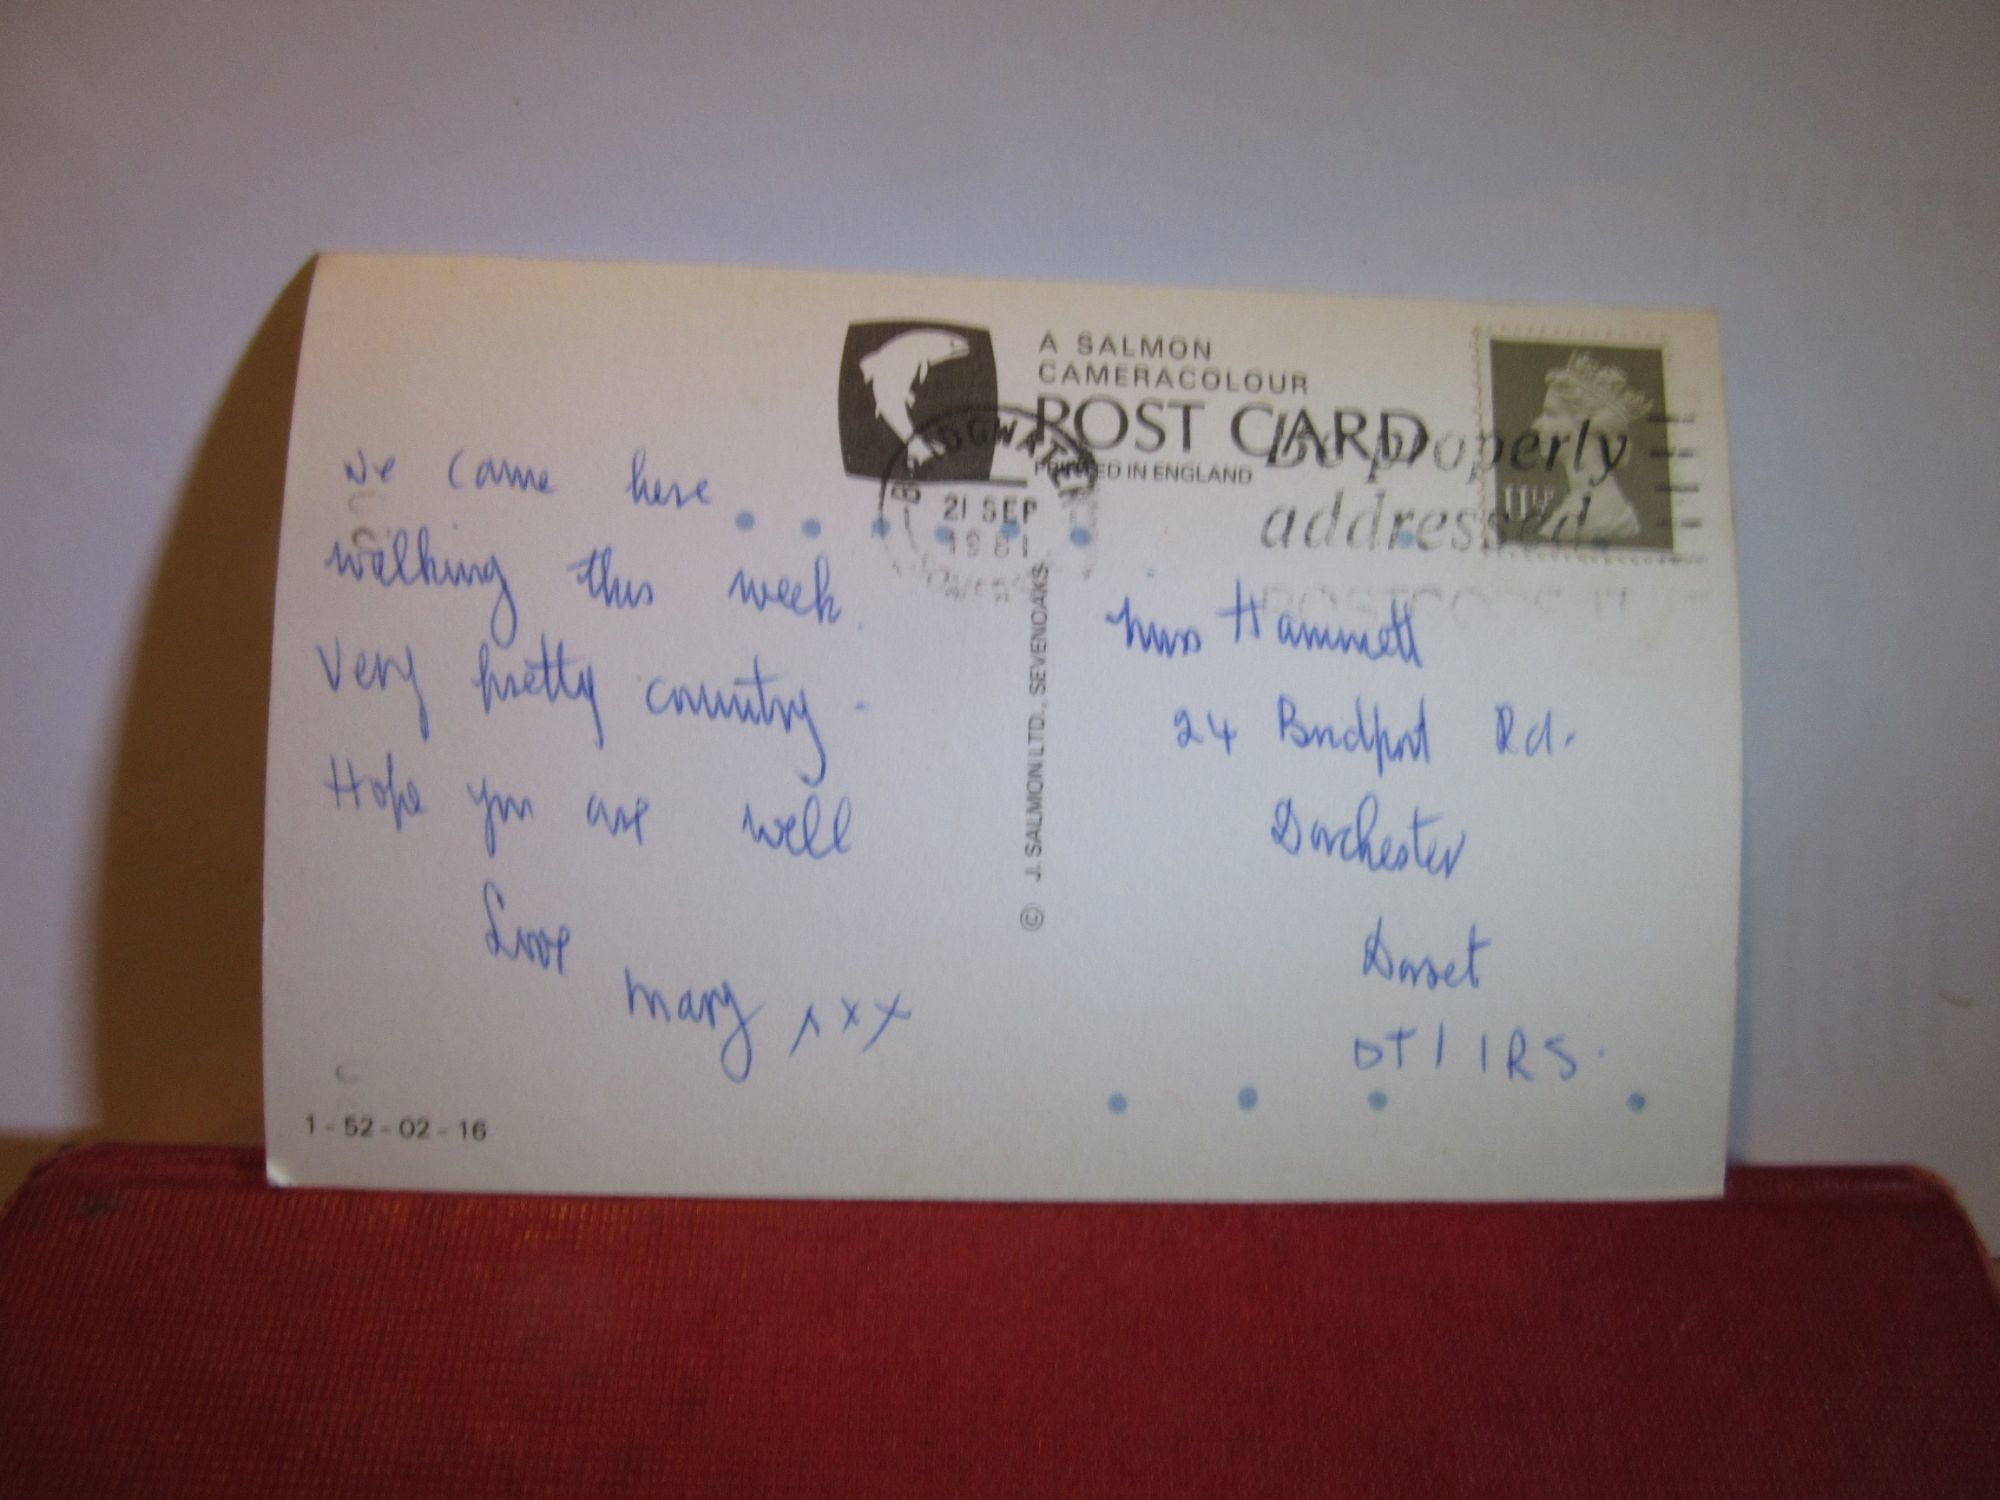 A SALMON
CAMERACOLOUR
POST CARD
PRINTED IN ENGLAND
BRIDGWATER
21 SEP
1981
SOMERSET
Be properly
addressed
POSTCODE IT
11½P
We came here
walking this week.
Very pretty country.
Hope you are well
Love
Mary xxx
© J. SALMON LTD., SEVENOAKS
Miss Hammett
24 Bridport Rd.
Dorchester
Dorset
DT1 1RS.
1-52-02-16